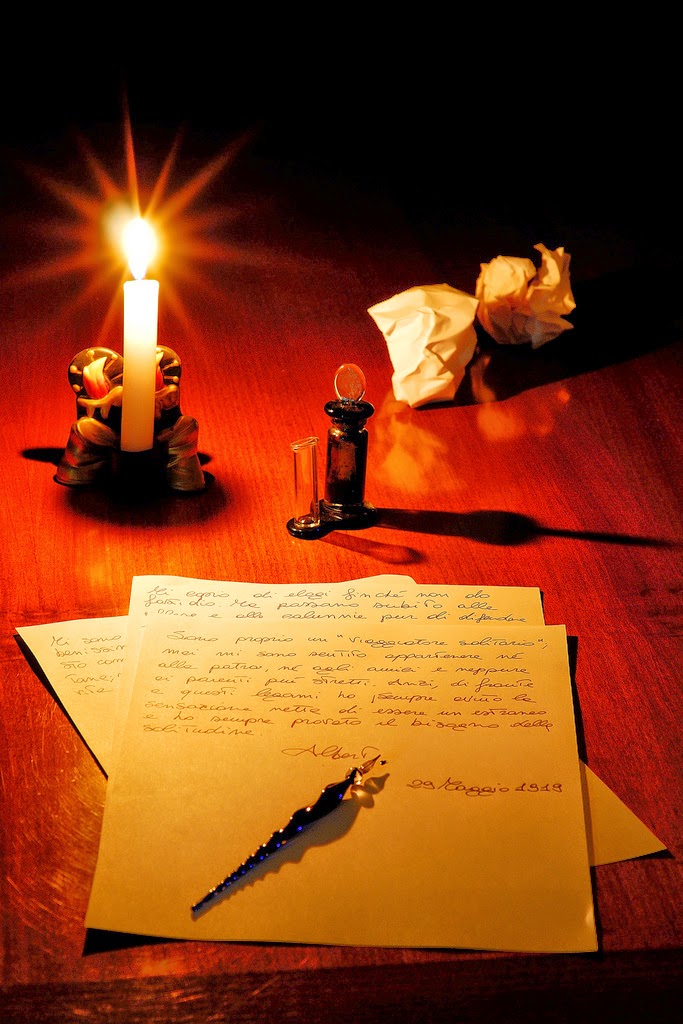 Mi copro di elogi finché non do
fastidio. Ma passano subito alle
e alle calunnie pur di difendere
Mi sono
sto com
Sono proprio un "Viaggiatore solitario",
mai mi sono sentito appartenere né
alla patria, né agli amici e neppure
ai parenti più stretti. Anzi, di fronte
a questi legami ho sempre avuto la
sensazione netta di essere un estraneo
e ho sempre provato il bisogno della
solitudine.
Albert
29 Maggio 1919